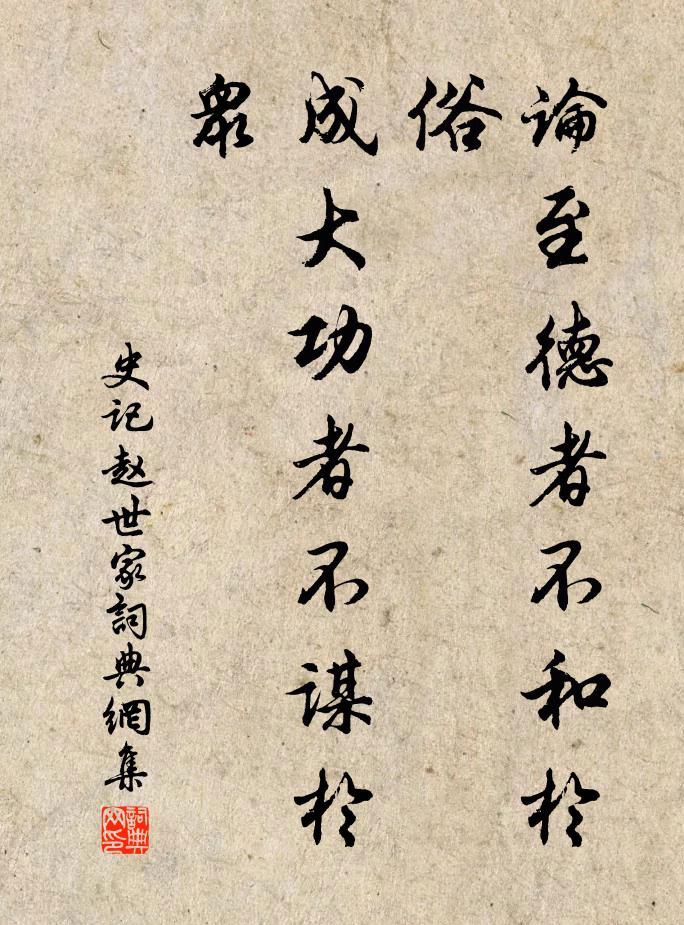 論至德者不和於
俗
成大功者不謀於
眾
史记赵世家詞典網集
詞典网印